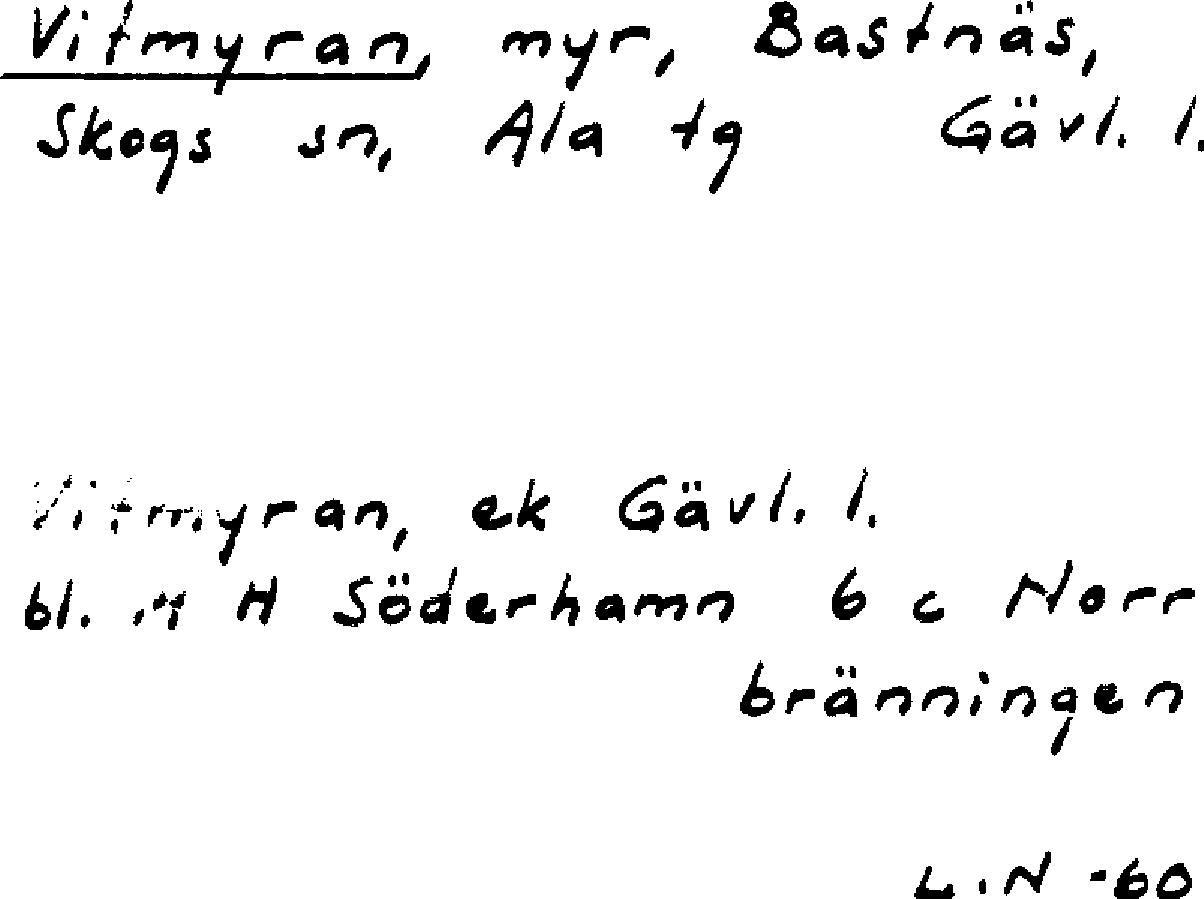 Vitmyran, myr, Bastnäs,
Skogs sn, Ala tg Gävl. l.
Vitmyran, ek Gävl. l.
bl. H Söderhamn 6 c Norr
bränningen
L.N -60